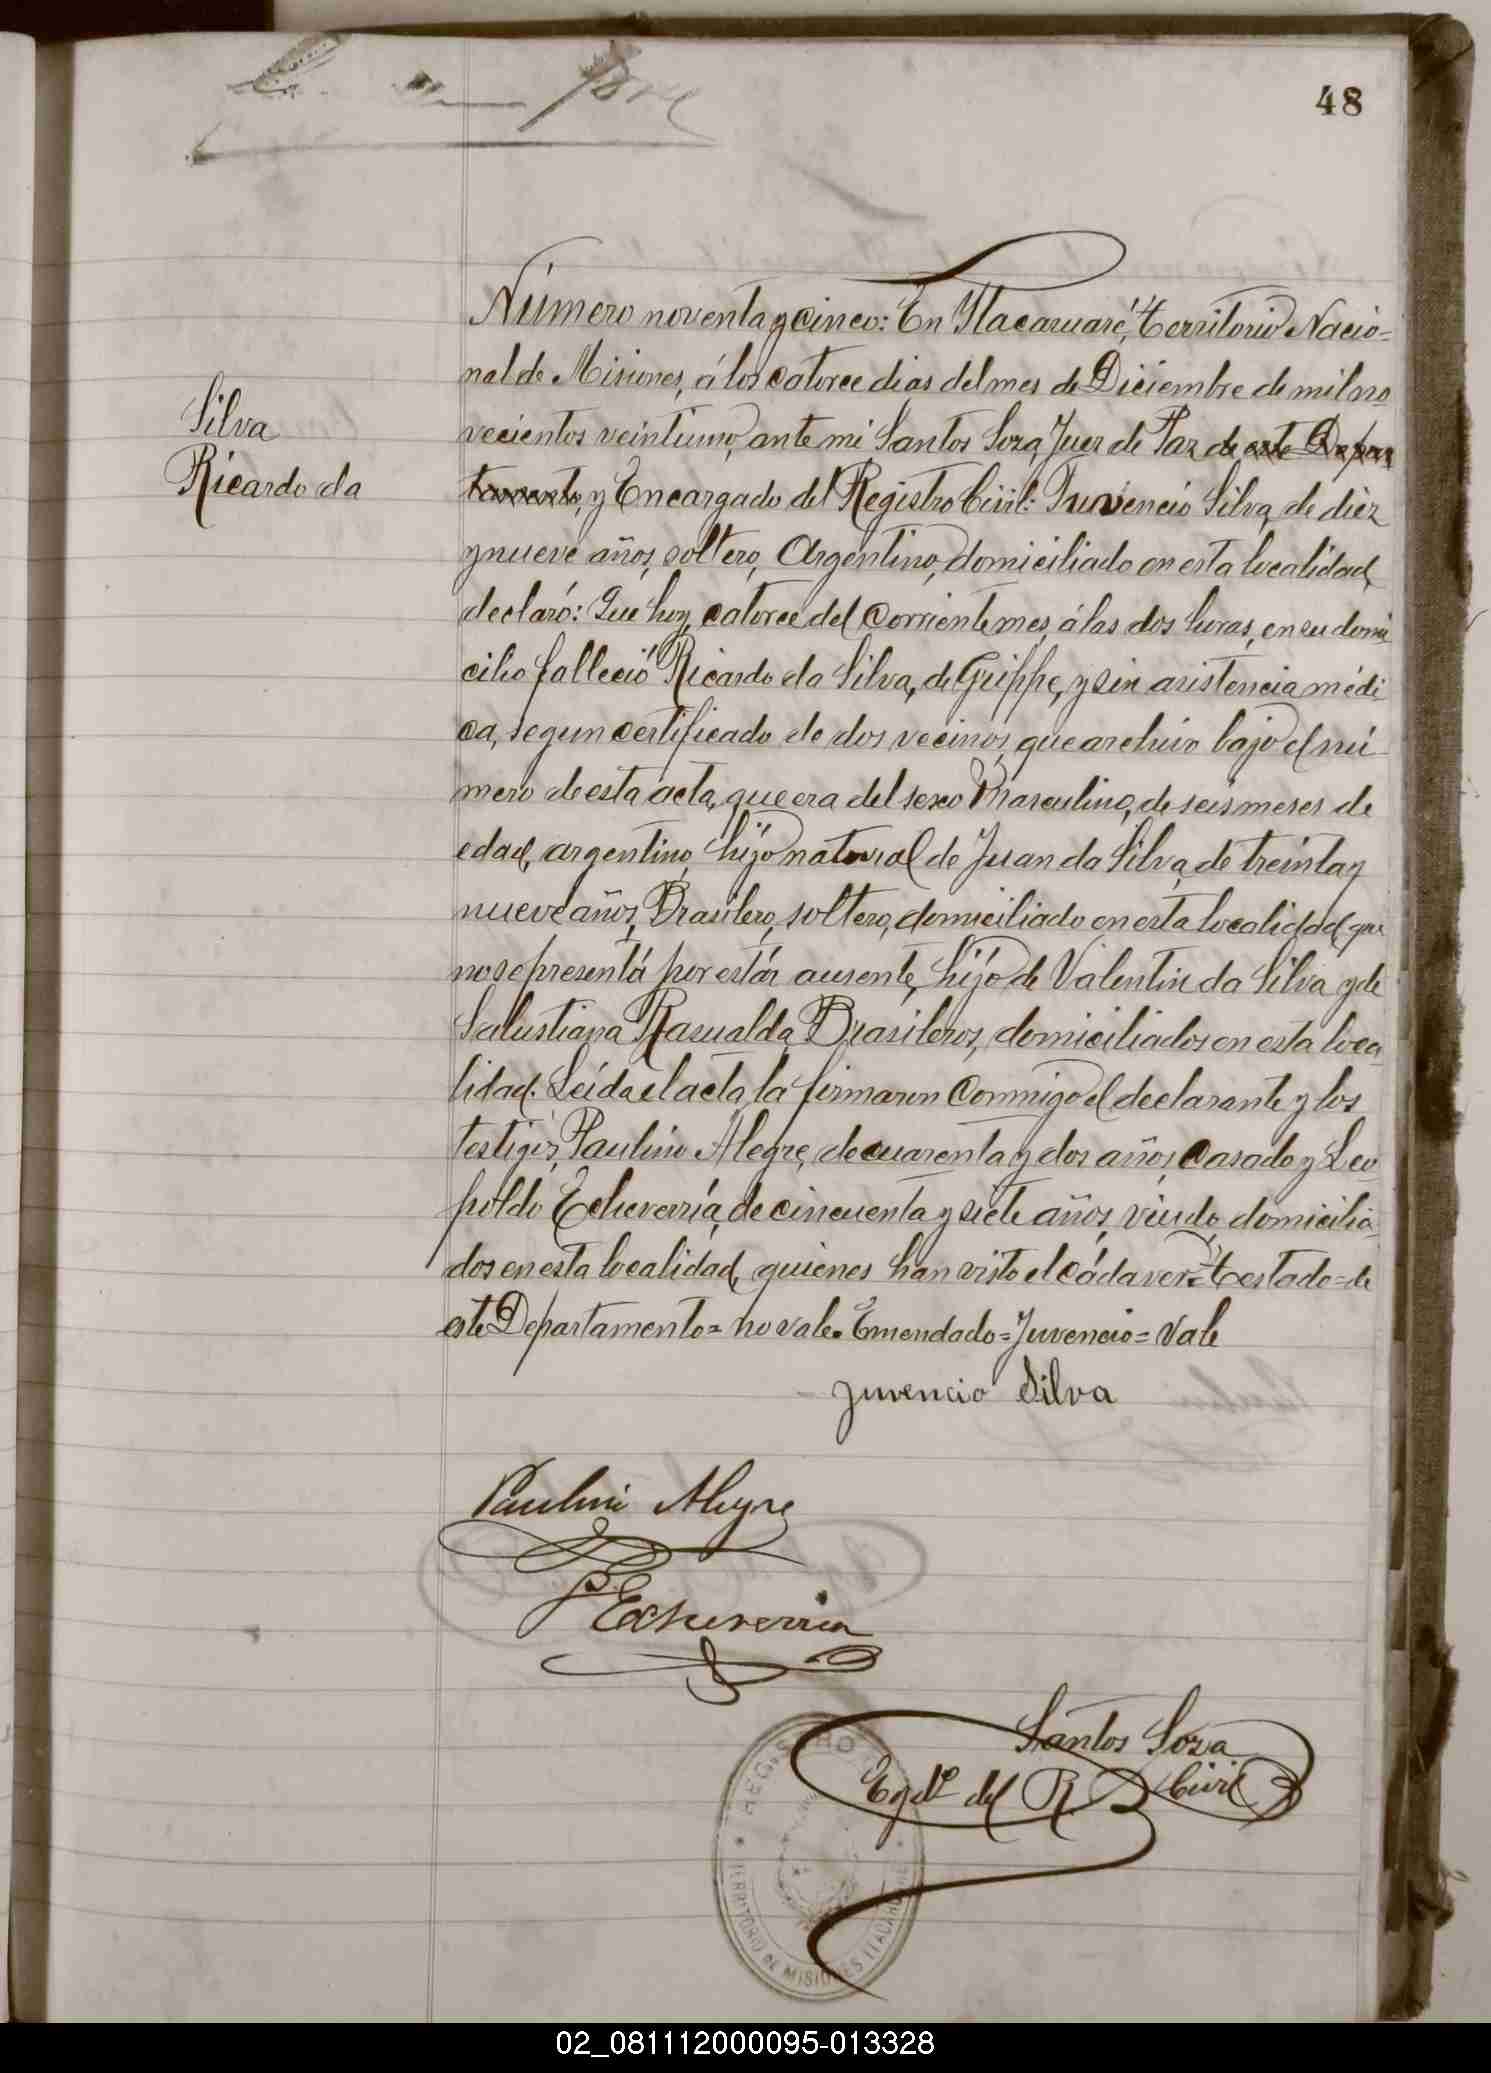 48
Silva
Ricardo da
Número noventa y cinco: En Itacaruaré, territorio Nacio-
nal de Misiones, á los catorce dias del mes de Diciembre de mil no
vecientos veintiuno, ante mi Santos Soza, Juez de Paz de este Depar
tamento, y Encargado del Registro Civil: Juvencio Silva, de diez
y nueve años, soltero, Argentino, domiciliado en esta localidad,
declaró: Que hoy, catorce del corriente mes, á las dos horas, en su domi
cilio falleció Ricardo da Silva, de Grippe, y sin asistencia médi-
ca, segun certificado de dos vecinos, que archivo bajo el nú
mero de esta acta, que era del sexo Masculino, de seis meses de
edad, argentino, hijo natural de Juan da Silva, de treinta y
nueve años, Brasilero, soltero, domiciliado en esta localidad, que
no se presentá por estár ausente, hijo de Valentin da Silva y de
Salustiana Brasileros, domiciliados en esta loca
lidad. Leída el acta, la firmaron conmigo el declarante y los
testigos, Paulino Alegre, de cuarenta y dos años, casado y Leo-
poldo Echeverría, de cincuenta y siete años, viudo, domicilia-
dos en esta localidad, quienes han visto el cádaver. Testado=de
este Departamento= no vale. Emendado=Juvencio= Vale
Juvencio Silva
Paulino Alegre
Echeverria
Santos Soza
Egdo del R. Civil
REGISTRO
TERRITORIO DE MISIONES ITACARUARE
02_081112000095-013328